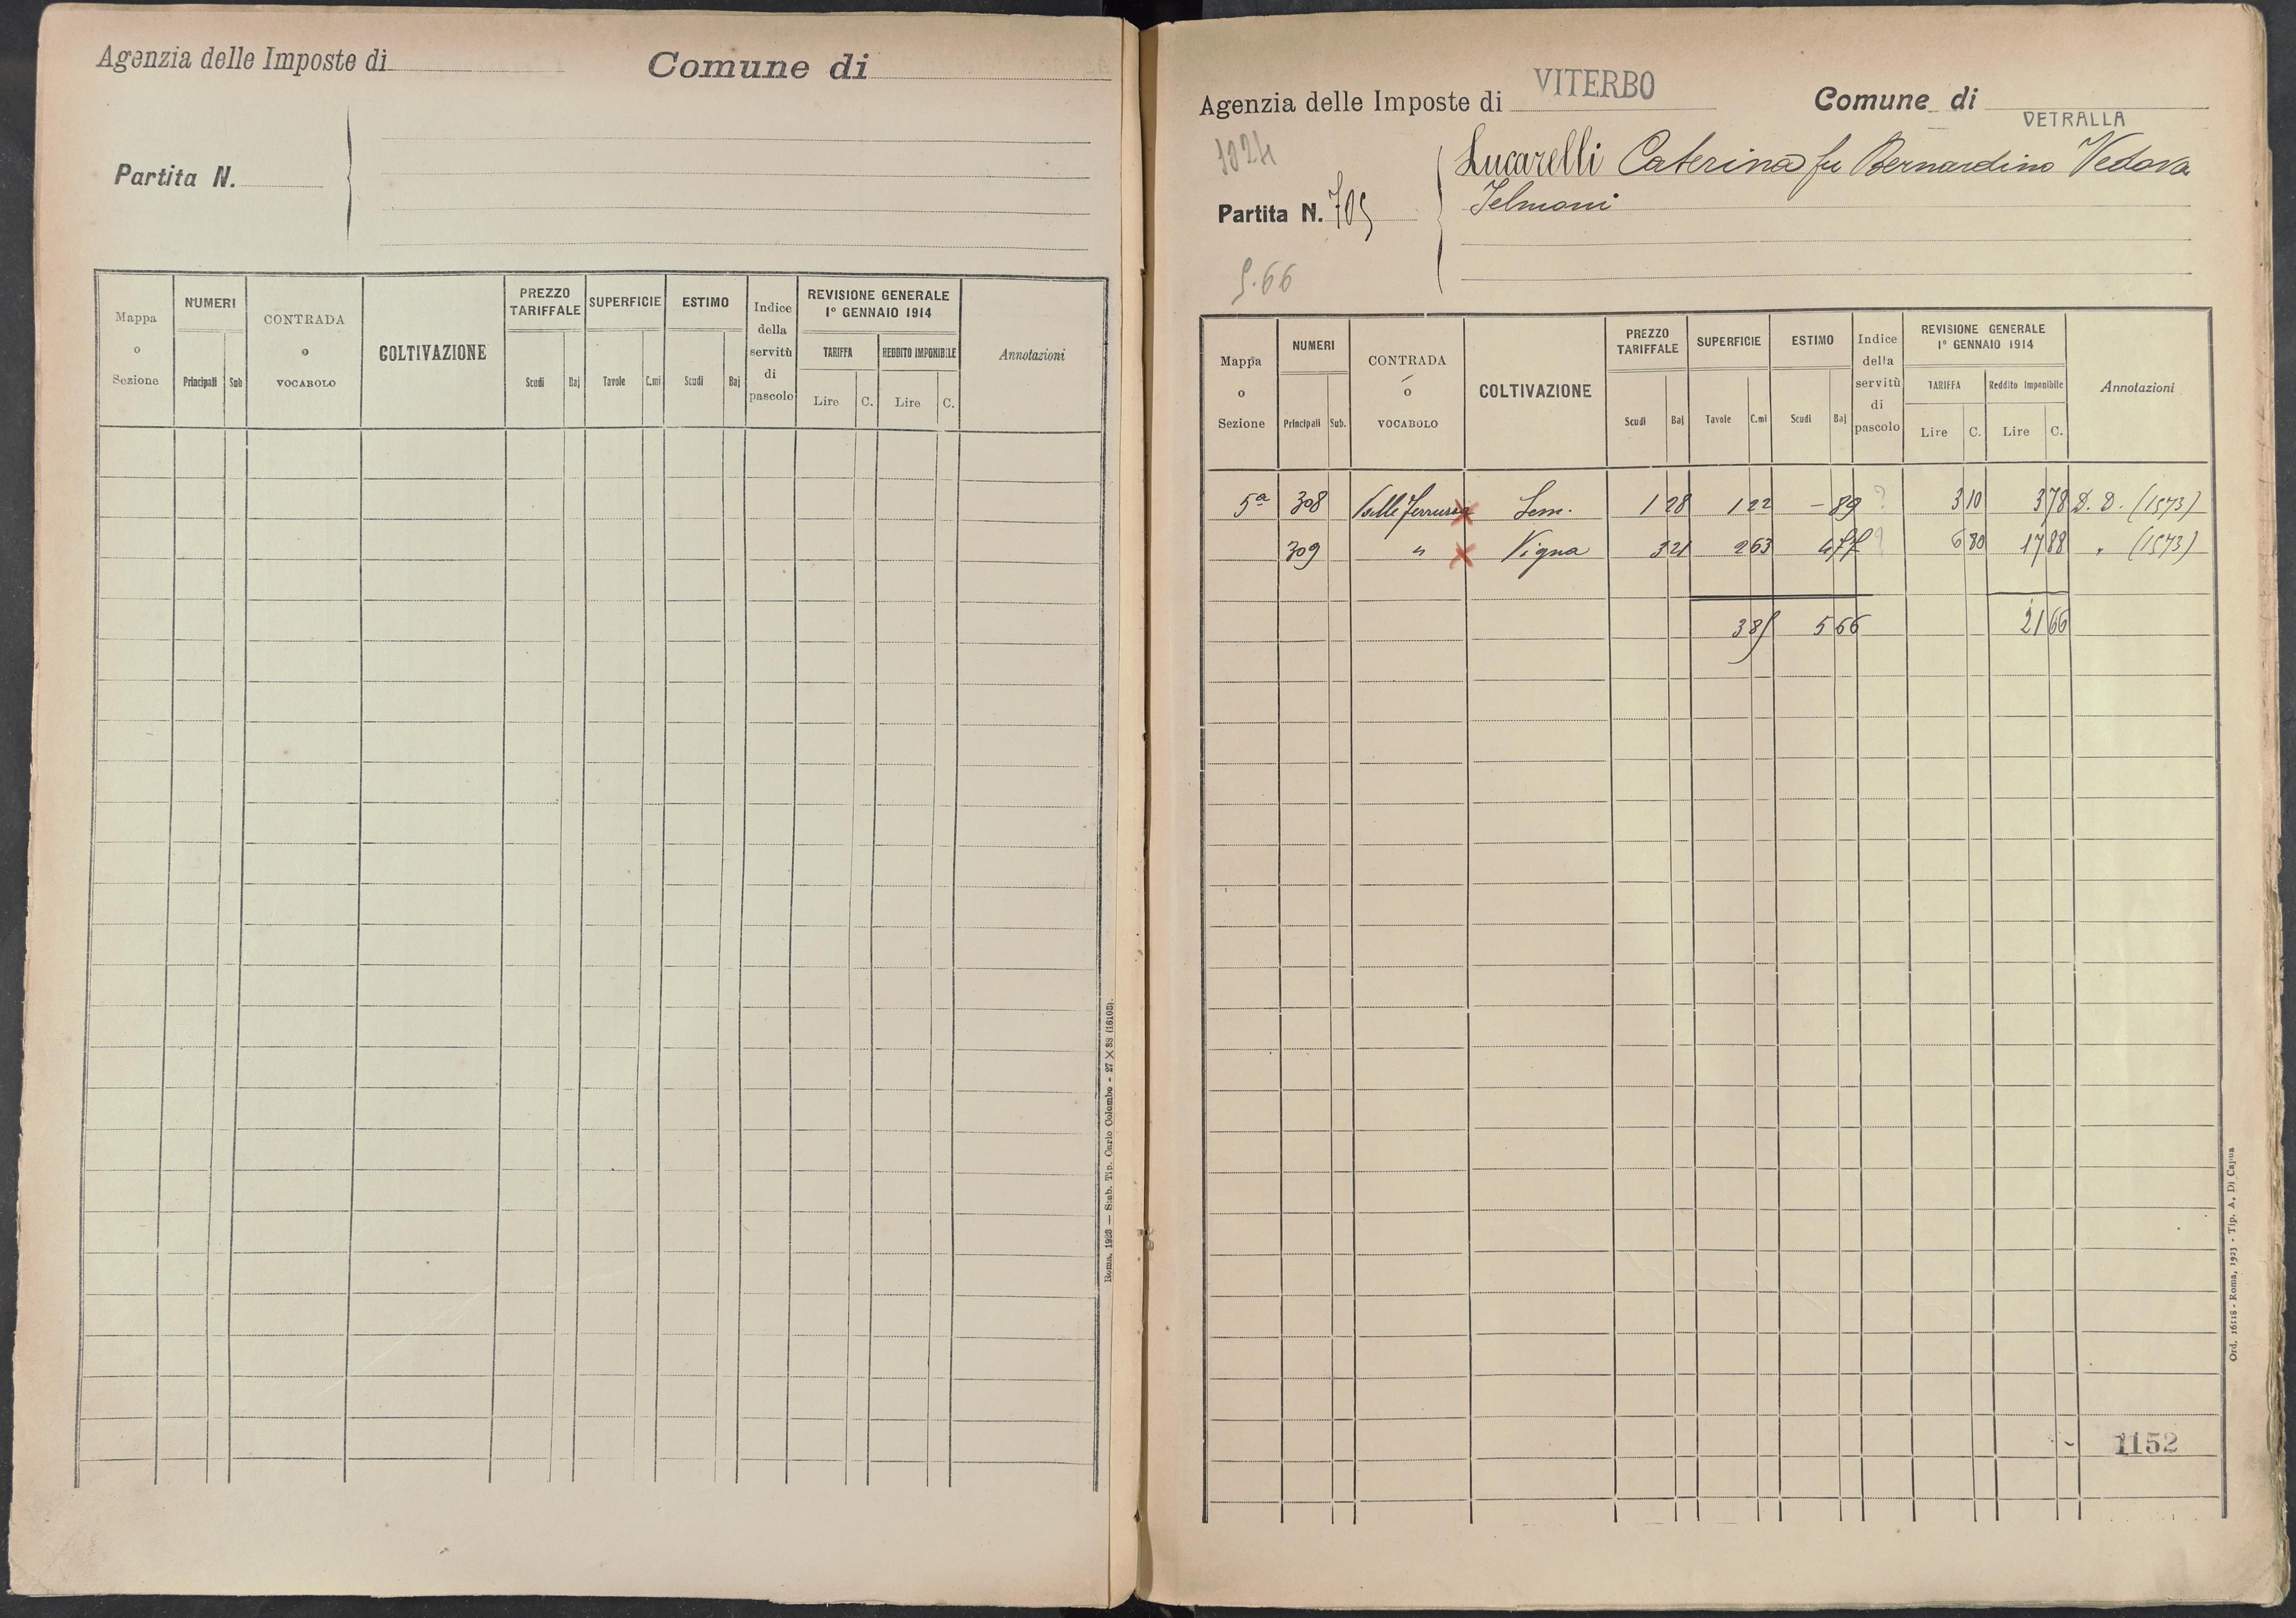 Agenzia delle Imposte di
Comune di
Partita N.
Mappa o Sezione
NUMERI
Principali Sub
CONTRADA o VOCABOLO
COLTIVAZIONE
PREZZO TARIFFALE
Scudi Baj
SUPERFICIE
Tavole C.mi
ESTIMO
Scudi Baj
Indice della servitù di pascolo
REVISIONE GENERALE
1º GENNAIO 1914
TARIFFA
Lire C.
REDDITO IMPONIBILE
Lire C.
Annotazioni
Roma, 1923 — Stab. Tip. Carlo Colombo - 27 X 38 (16103).
Agenzia delle Imposte di VITERBO
Comune di VETRALLA
1024
Partita N. 705
5.66
Lucarelli Caterina fu Bernardino Vedova
Mappa o Sezione
NUMERI
Principali Sub.
CONTRADA o VOCABOLO
COLTIVAZIONE
PREZZO TARIFFALE
Scudi Baj
SUPERFICIE
Tavole C.mi
ESTIMO
Scudi Baj
Indice della servitù di pascolo
REVISIONE GENERALE
1º GENNAIO 1914
TARIFFA
Lire C.
Reddito Imponibile
Lire C.
Annotazioni
5ª 308 Valle Sem. 1 28 1 22 - 89 ? 3 10 3 78 D. D. (1573)
309 " Vigna 3 21 2 63 4 77 ? 6 80 17 88 " (1573)
3 85 5 66 21 66
1152
Ord. 16118 - Roma, 1923 - Tip. A. Di Capua